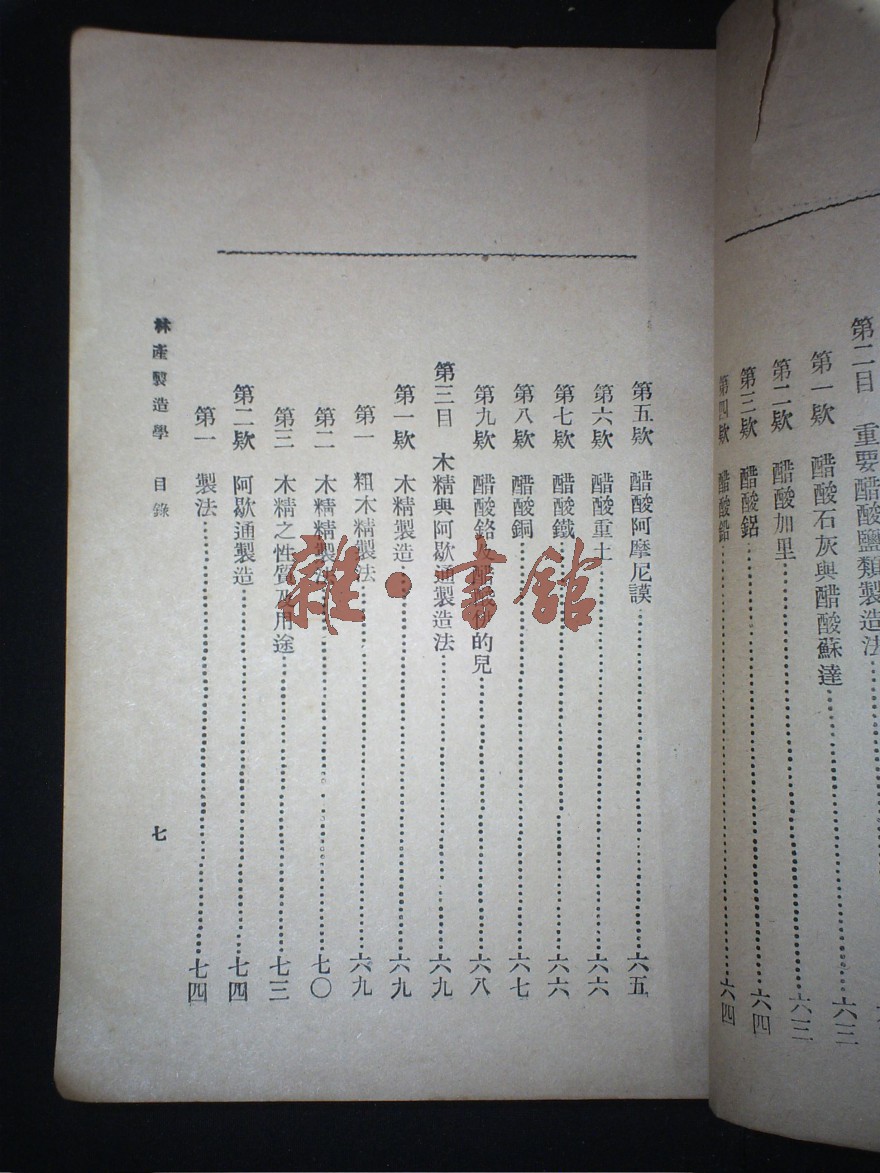 第二目 重要醋酸鹽類製造法
第一欵 醋酸石灰與醋酸蘇達………六三
第二欵 醋酸加里………六三
第三欵 醋酸鋁………六四
第四欵 醋酸鉛………六四
第五欵 醋酸阿摩尼謨………六五
第六欵 醋酸重土………六六
第七欵 醋酸鐵………六六
第八欵 醋酸銅………六七
第九欵 醋酸鉻及醋酸 的兒………六八
第三目 木精與阿歇通製造法………六九
第一欵 木精製造………六九
第一 粗木精製法………六九
第二 木精精製法………七〇
第三 木精之性質及用途………七三
第二欵 阿歇通製造………七四
第一 製法………七四
林產製造學 目錄 七
雜·書館